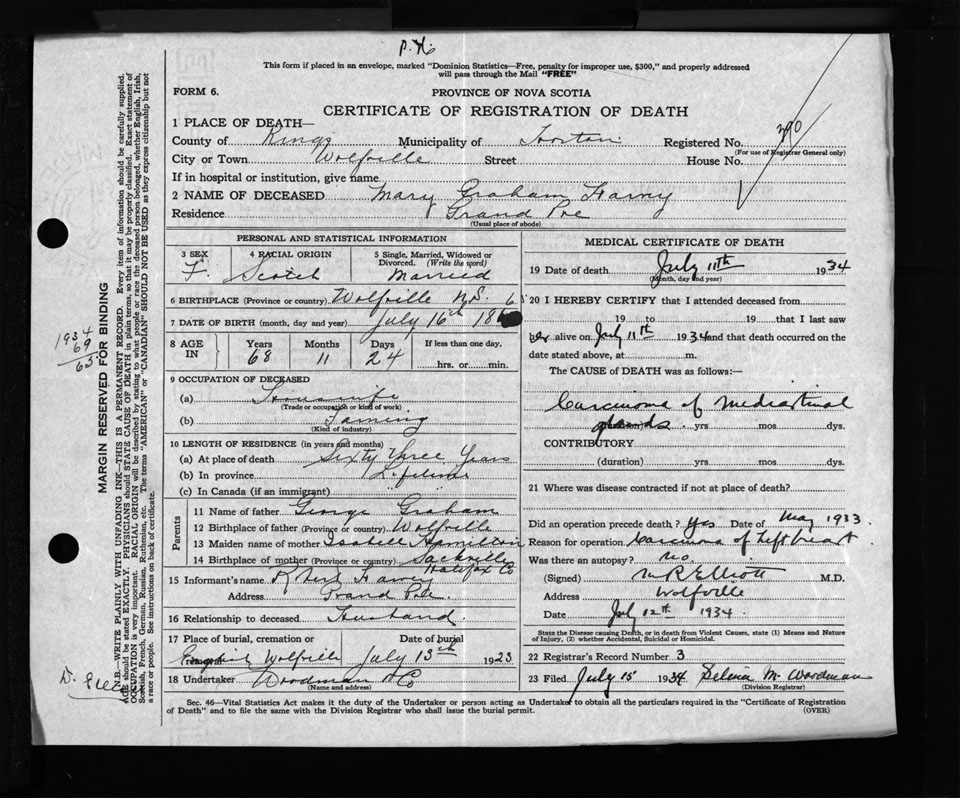 P. H.
This form if placed in an envelope, marked "Dominion Statistics—Free, penalty for improper use, $300," and properly addressed
will pass through the Mail "FREE"
FORM 6.
PROVINCE OF NOVA SCOTIA
CERTIFICATE OF REGISTRATION OF DEATH
1 PLACE OF DEATH—
County of Kings Municipality of Horton Registered No. 390
(For use of Registrar General only)
City or Town Wolfville Street House No.
If in hospital or institution, give name
2 NAME OF DECEASED Mary Graham Harvey
Residence Grand Pre
(Usual place of abode)
PERSONAL AND STATISTICAL INFORMATION
3 SEX F.
4 RACIAL ORIGIN Scotch
5 Single, Married, Widowed or Divorced. (Write the word) Married
6 BIRTHPLACE (Province or country) Wolfville N.S.
7 DATE OF BIRTH (month, day and year) July 16th 186
8 AGE IN Years 68 Months 11 Days 24 If less than one day, hrs. or min.
9 OCCUPATION OF DECEASED
(a) Housewife
(Trade or occupation or kind of work)
(b) Farming
(Kind of industry)
10 LENGTH OF RESIDENCE (in years and months)
(a) At place of death Sixty Three Years
(b) In province Lifetime
(c) In Canada (if an immigrant)
Parents
11 Name of father George Graham
12 Birthplace of father (Province or country) Wolfville
13 Maiden name of mother Isabell Hamilton
14 Birthplace of mother (Province or country) Sackville
Halifax Co
15 Informant's name Robert Harvey
Address Grand Pre.
16 Relationship to deceased Husband.
17 Place of burial, cremation or Date of burial
Wolfville July 13th 1923
18 Undertaker Woodman & Co
(Name and address)
MEDICAL CERTIFICATE OF DEATH
19 Date of death July 11th 1934
(Month, day and year)
20 I HEREBY CERTIFY that I attended deceased from
19 to 19 that I last saw
her alive on July 11th 1934 and that death occurred on the
date stated above, at m.
The CAUSE of DEATH was as follows:—
Carcinoma of Mediastinal
glands yrs mos dys.
CONTRIBUTORY
(duration) yrs mos dys.
21 Where was disease contracted if not at place of death?
Did an operation precede death? Yes Date of May 1933
Reason for operation Carcinoma of left breast
Was there an autopsy? No
(Signed) M R Elliott M.D.
Address Wolfville
Date July 12th 1934.
State the Disease causing Death, or in death from Violent Causes, state (1) Means and Nature
of Injury, (2) whether Accidental, Suicidal or Homicidal.
22 Registrar's Record Number 3
23 Filed July 15 1934 Selena M. Woodman
(Division Registrar)
Sec. 46—Vital Statistics Act makes it the duty of the Undertaker or person acting as Undertaker to obtain all the particulars required in the "Certificate of Registration
of Death" and to file the same with the Division Registrar who shall issue the burial permit.
(OVER)
MARGIN RESERVED FOR BINDING
N.B. WRITE PLAINLY WITH UNFADING INK—THIS IS A PERMANENT RECORD. Every item of information should be carefully supplied.
AGE should be stated EXACTLY. PHYSICIANS should STATE CAUSE OF DEATH in plain terms, so that it may be properly classified. Exact statement of
OCCUPATION is very important. RACIAL ORIGIN will be described by stating to what people or race the deceased person belonged, whether English, Irish,
Scottish, French, German, Russian, Ruthenian, etc. The terms "AMERICAN" or "CANADIAN" SHOULD NOT BE USED as they express citizenship but not
a race or people. See instructions on back of certificate.
1934
69
65